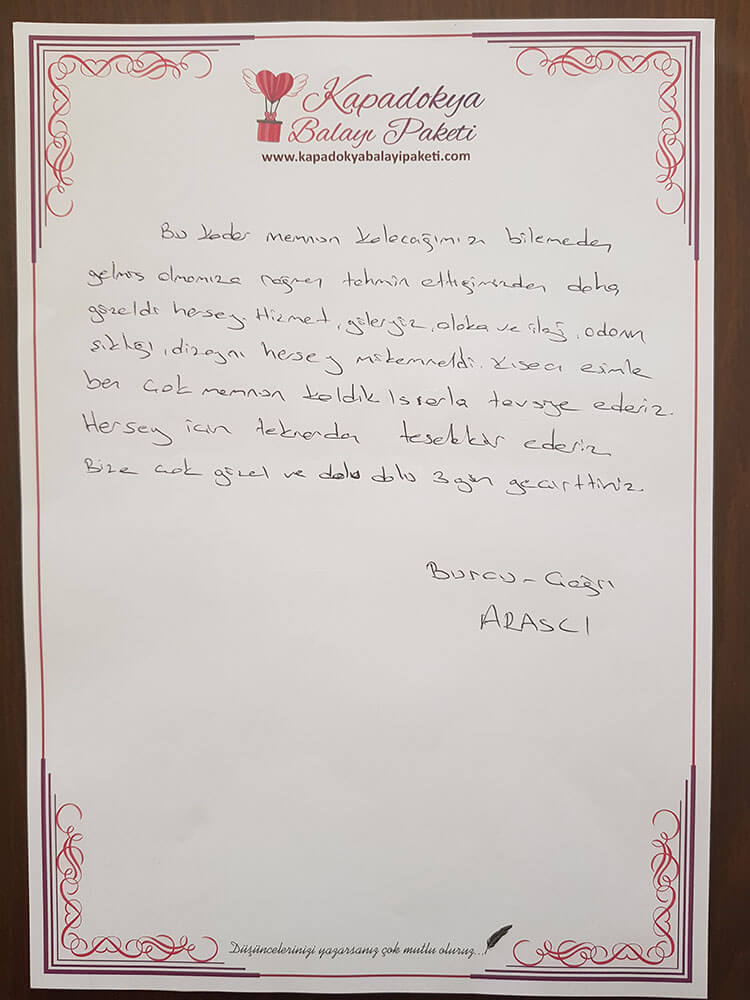 Kapadokya
Balayı Paketi
www.kapadokyabalayipaketi.com
Bu kadar memnun kalacağımızı bilemeden
gelmiş olmamıza rağmen tahmin ettiğimizden daha
güzeldi hersey. Hizmet, güleryüz, alaka ve ilgi, odanın
şıklığı, dizaynı hersey mükemmeldi. Kısaca esimle
ben çok memnun kaldık Israrla tavsiye ederiz.
Hersey icin tekrardan tesekkür ederiz
Bize çok güzel ve dolu dolu 3 gün gecirttiniz.
Burcu - Çağrı
ARASCI
Düşüncelerinizi yazarsanız çok mutlu oluruz...